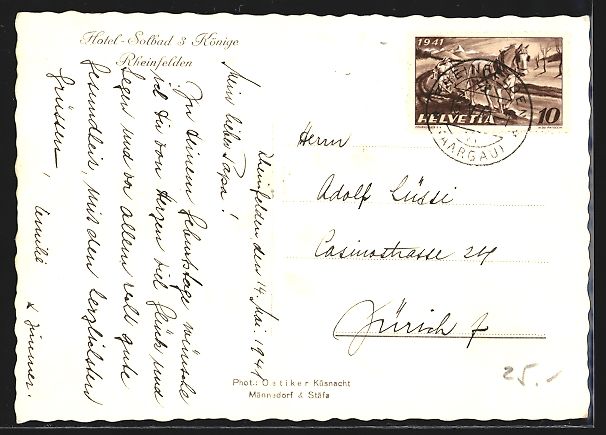 Hotel-Solbad 3 Könige
Rheinfelden
Rheinfelden den 14. Mai. 1941
Mein lieber Papa!
Zu deinem Geburtstage wünsche
ich dir von Herzen viel Glück und
Segen und vor allem recht gute
Gesundheit, mit den herzlichsten
Grüssen,
1941
HELVETIA 10
RHEINFELDEN
(AARGAU)
Herrn
Adolf Lüssi
Casinostrasse 24
Zürich 7
Phot.: Oetiker Küsnacht
Männedorf & Stäfa
25.-